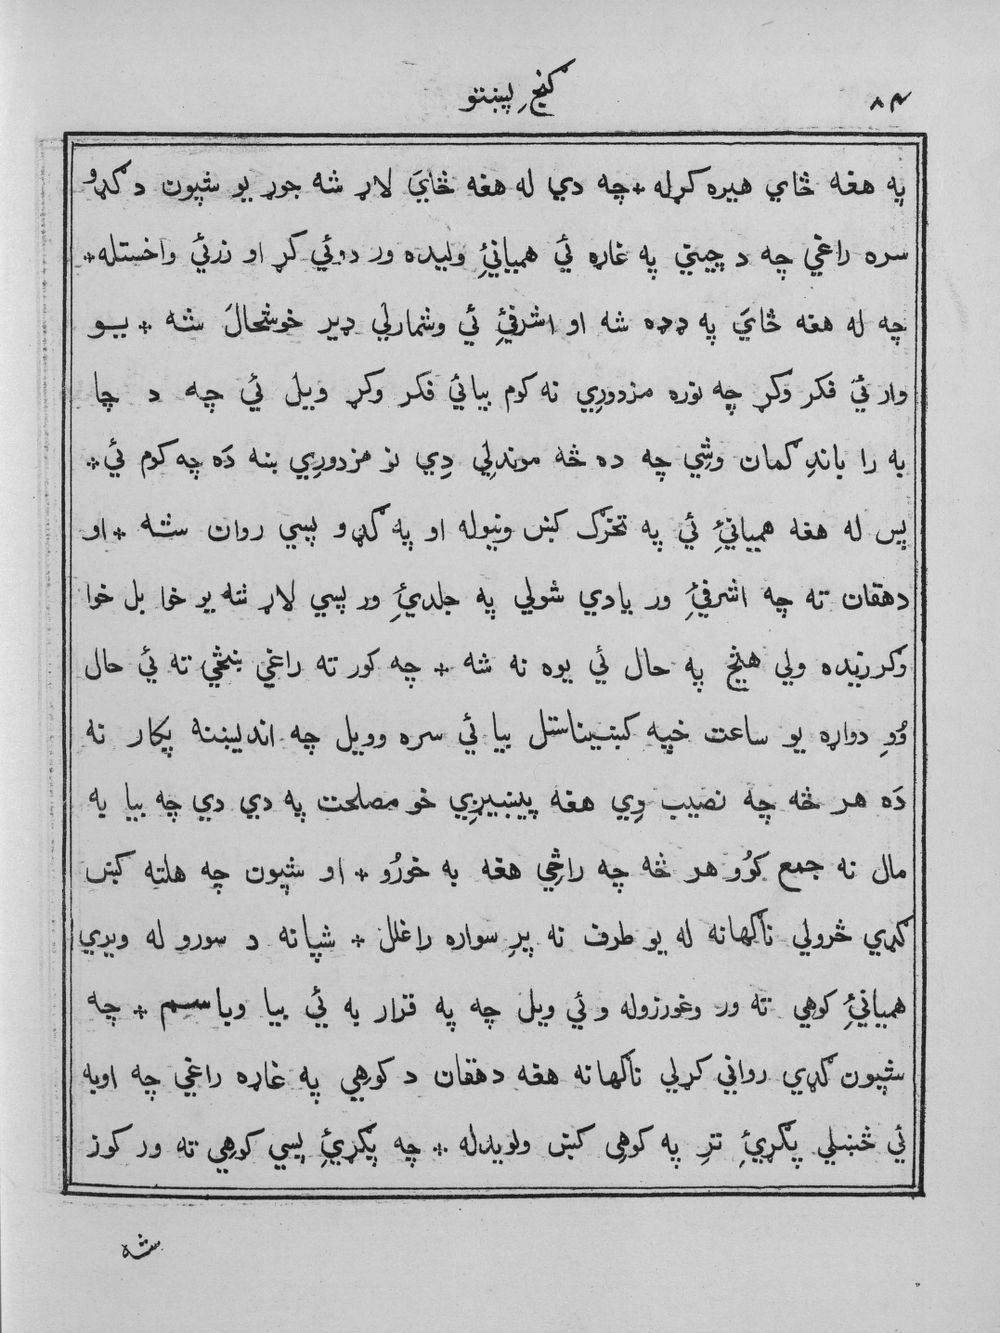 ۸۴
گنجِ پښتو
په هغه ځاي هيره کړله * چه دي له هغه ځايَ لاړ شه جوړ يو شپون د ګډو
سره راغي چه د چيني په غاړه ئي هميانئِ وليده ور دوئي کړ او زرئي واخستله *
چه له هغه ځايَ په ډډه شه او اشرفئِ ئي وشمارلي ډير خوشحالَ شه * يو
وار ئي فکر وکړ چه نوره مزدورِي نه کوم بيا ئي فکر وکړ ويل ئي چه د چا
به را باندِ ګمان وشِي چه ده څه موندلِي دِي نز مزدورِي ښه دَه چه کوم ئي *
پس له هغه هميانئِ ئي په تخرګ کښ ونيوله او په ګډو پسي روان شه * او
دهقان ته چه اشرفئِ ور يادي شولي په جلدئِ ور پسي لاړ شه يو خوا بل خوا
وګرزيده ولي هيڅ په حال ئي يوه نه شه * چه کور ته راغي ښځي ته ئي حال
وُوِ دواړه يو ساعت خپه کښيناستل بيا ئي سره وويل چه انديښنه پکار نه
دَه هر څه چه نصيب وِي هغه پيښيږِي خو مصلحت په دي دي چه بيا به
مال نه جمع کوُو هر څه چه راځِي هغه به خورُو * او شپون چه هلته کښ
ګډي څرولي ناګهانه له يو طرف نه پرِ سواره راغلل * شپانه د سورو له ويري
هميانئِ کوهي ته ور وغورزوله و ئي ويل چه په قرار به ئي بيا وباسم * چه
شپون ګډي رواني کړلي ناګهانه هغه دهقان د کوهي په غاړه راغي چه اوبه
ئي څښلي پګړئِ ترِ په کوهِي کښ ولويدله * چه پګړئِ پسي کوهي ته ور کوز
شه